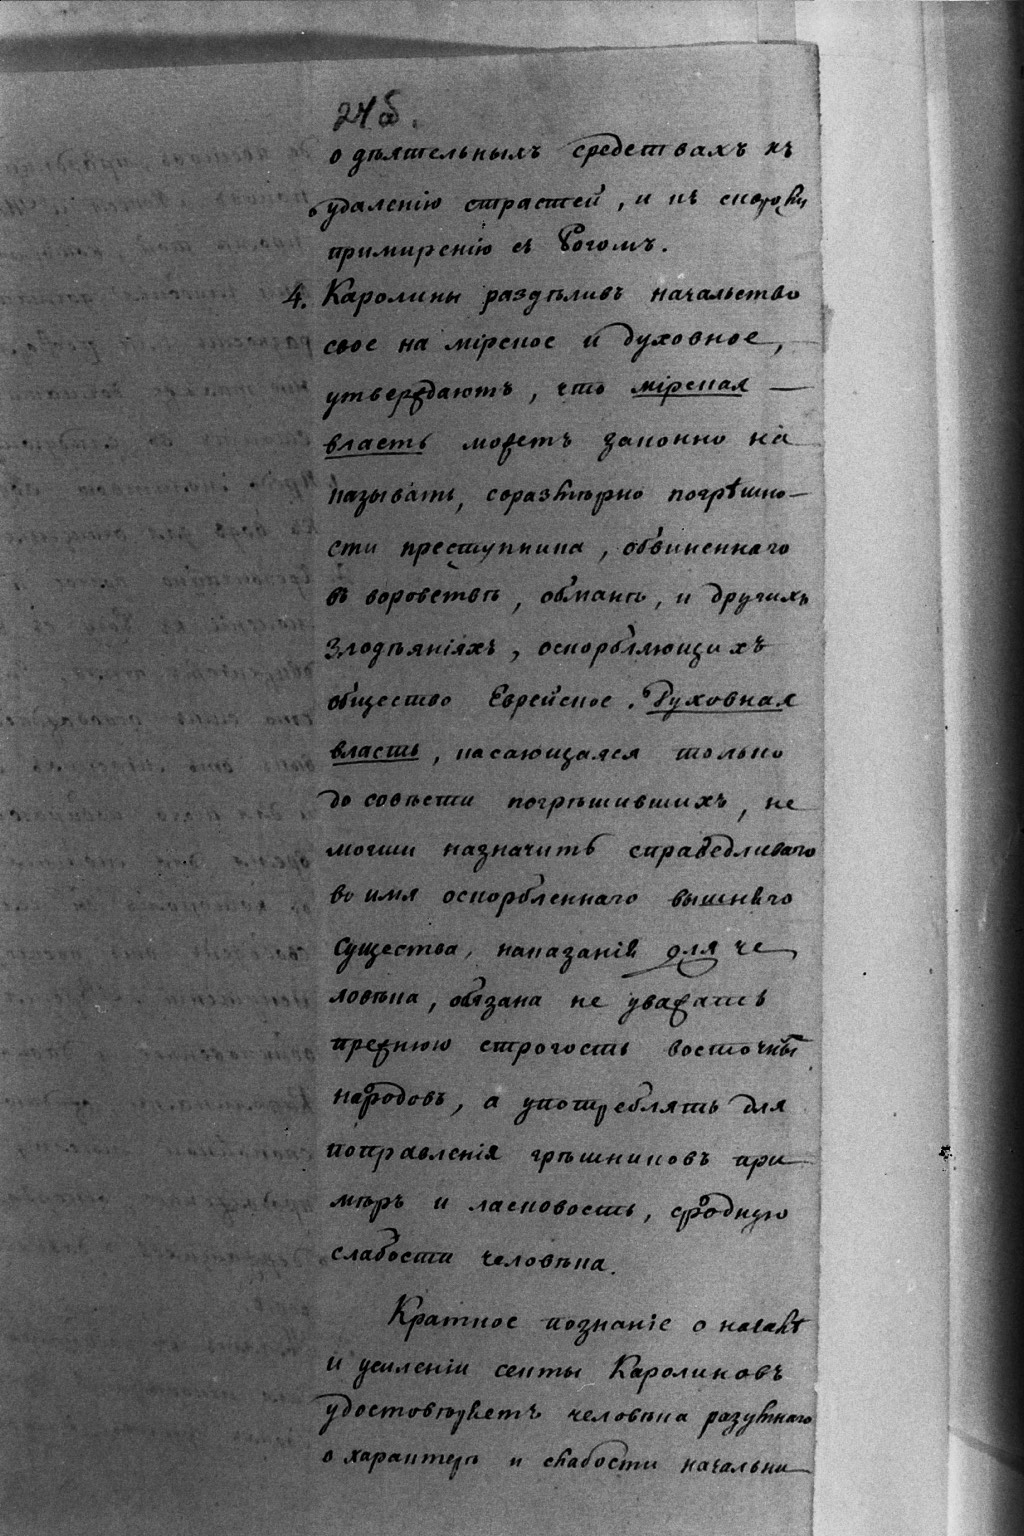 24б.
о дѣятельныхъ средствахъ къ
удаленію страстей, и къ скорому
примиренію съ Богомъ.
4. Каролины раздѣливъ начальство
свое на мірское и духовное,
утверждаютъ, что мірская —
власть можетъ законно на
казывать, соразмѣрно погрѣшно-
сти преступника, обвиненнаго
въ воровствѣ, обманѣ, и другихъ
злодѣяніяхъ, оскорбляющихъ
общество Еврейское. Духовная
власть, касающаяся только
до совѣсти погрѣшившихъ, не
могши назначить справедливаго
во имя оскорбленнаго вышняго
существа, наказанія для че
ловѣка, обязана не уважать
прежнюю строгость восточныхъ
народовъ, а употреблять для
поправленія грѣшниковъ при
мѣръ и ласковость, сродную
слабости человѣка.
Краткое познаніе о началѣ
и усиленіи секты Каролиновъ
удостовѣряетъ человѣка разумнаго
о характерѣ и слабости начальни